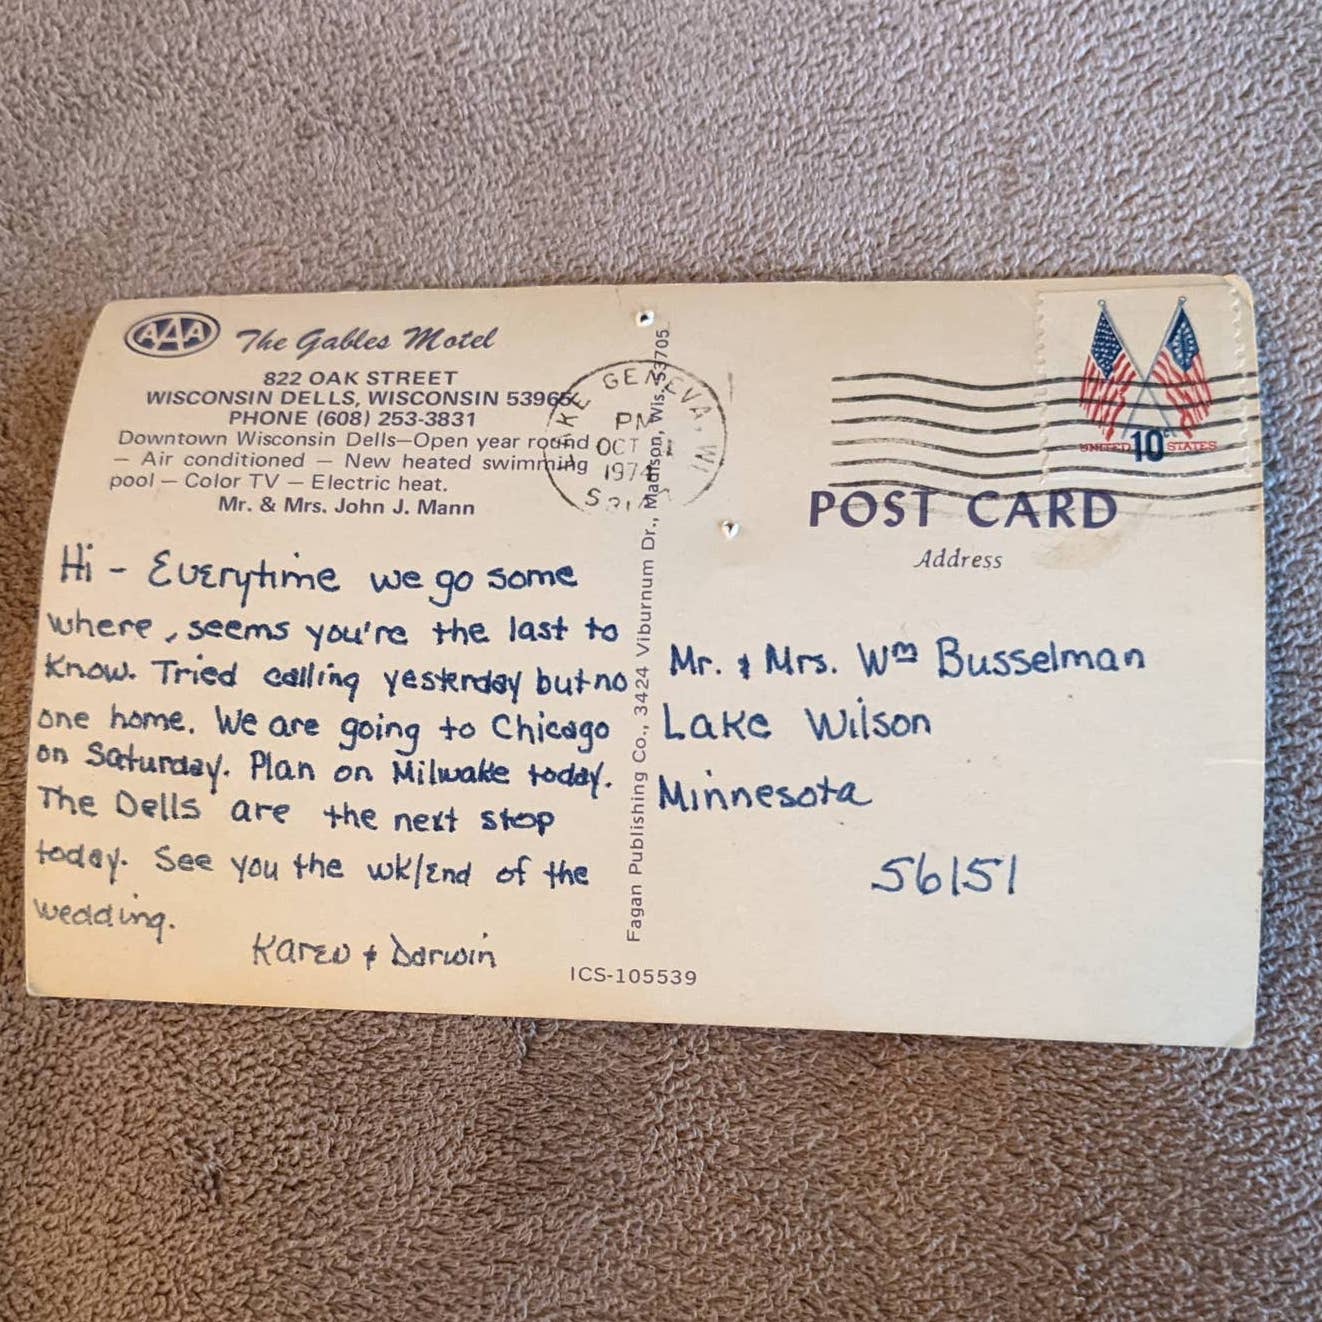 AAA The Gables Motel
822 OAK STREET
WISCONSIN DELLS, WISCONSIN 53965
PHONE (608) 253-3831
Downtown Wisconsin Dells—Open year round
— Air conditioned — New heated swimming
pool — Color TV — Electric heat.
Mr. & Mrs. John J. Mann
Hi - Everytime we go some
where, seems you're the last to
know. Tried calling yesterday but no
one home. We are going to Chicago
on Saturday. Plan on Milwake today.
The Dells are the next stop
today. See you the wk/End of the
wedding.
Karen & Darwin
GENEVA, WI
PM
OCT
1974
Fagan Publishing Co., 3424 Viburnum Dr., Madison, Wis. 53705
ICS-105539
UNITED 10c STATES
POST CARD
Address
Mr. & Mrs. Wm Busselman
Lake Wilson
Minnesota
56151